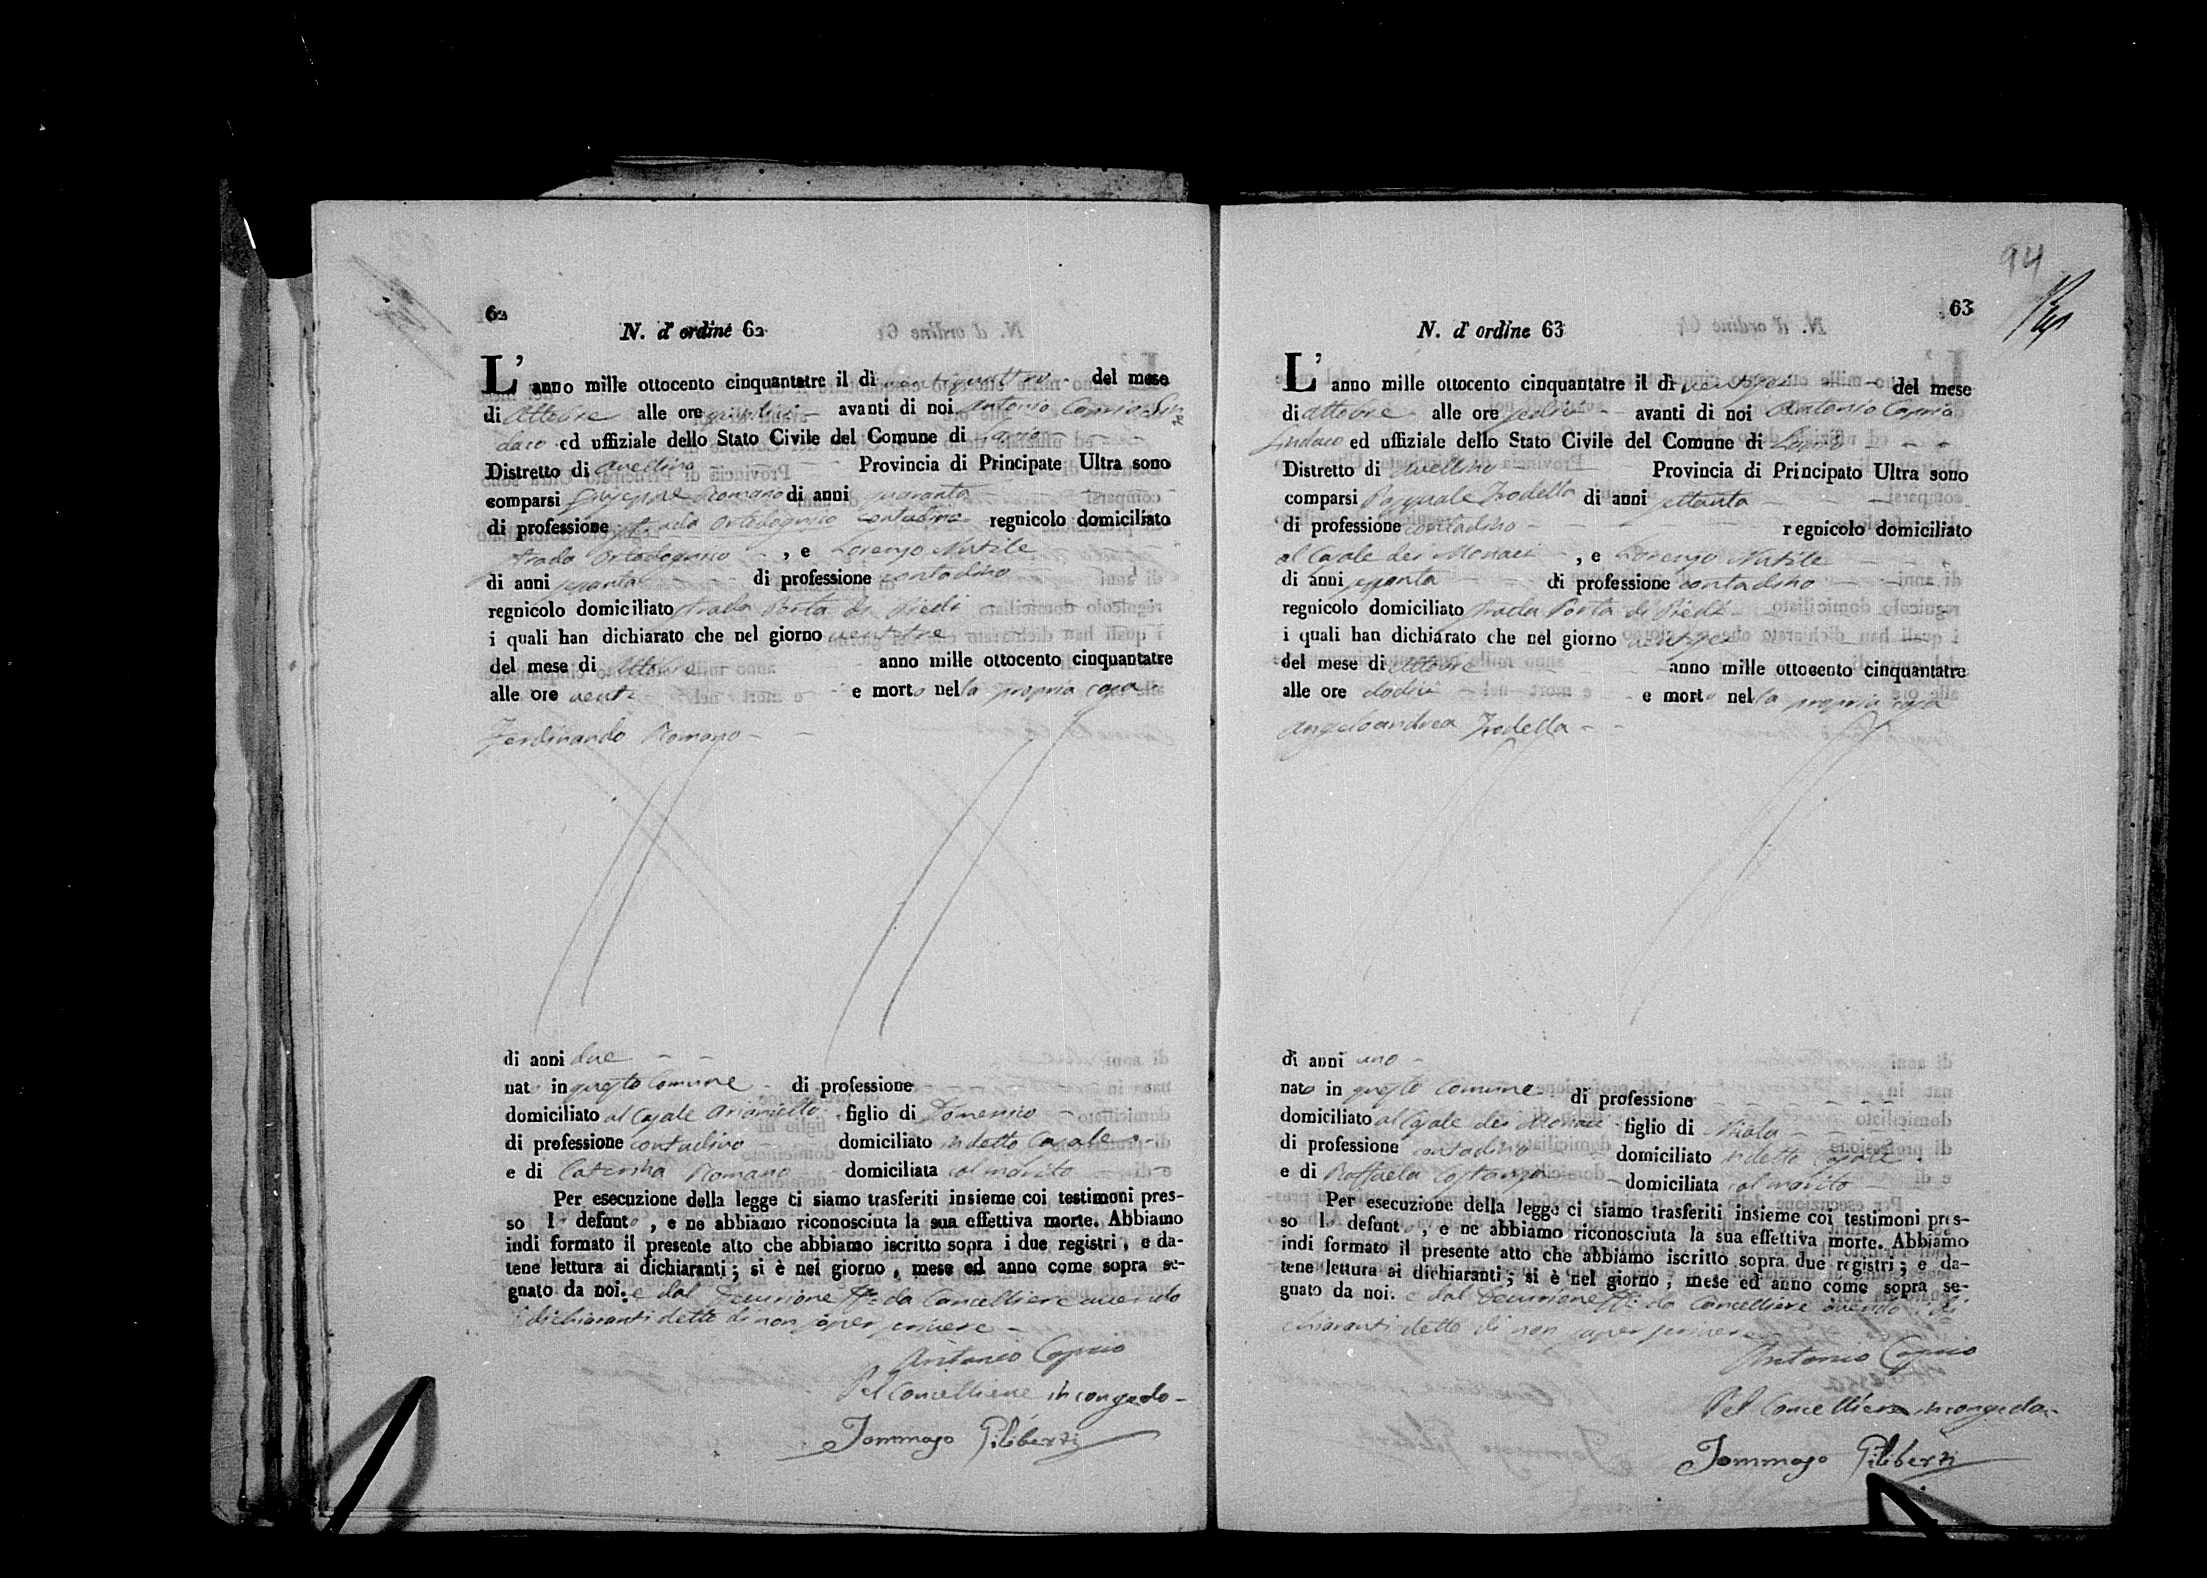 62
N. d' ordine 62
L' anno mille ottocento cinquantatre il dì ventiquattro del mese
di Ottobre alle ore quindici avanti di noi Antonio Caprio Sin
daco ed uffiziale dello Stato Civile del Comune di
Distretto di Avellino Provincia di Principato Ultra sono
comparsi Giuseppe Romano di anni quaranta
di professione contadino regnicolo domiciliato
strada , e Lorenzo Nutile
di anni di professione contadino
regnicolo domiciliato strada Porta di Piedi
i quali han dichiarato che nel giorno ventitre
del mese di Ottobre anno mille ottocento cinquantatre
alle ore venti e morto nella propria casa
Ferdinando Romano
di anni due
nato in questo Comune di professione
domiciliato al Casale Ariamello figlio di Domenico
di professione contadino domiciliato in detto Casale
e di Caterina Romano domiciliata col marito
Per esecuzione della legge ci siamo trasferiti insieme coi testimoni pres-
so lo defunto , e ne abbiamo riconosciuta la sua effettiva morte. Abbiamo
indi formato il presente atto che abbiamo iscritto sopra i due registri, e da-
tene lettura ai dichiaranti; si è nel giorno, mese ed anno come sopra se-
gnato da noi. e dal Decurione da Cancelliere avendo
i dichiaranti detto di non saper scrivere
Antonio Caprio
Pel Cancelliere in congedo
Tommaso Piliberti
94
63
N. d' ordine 63
L' anno mille ottocento cinquantatre il dì del mese
di Ottobre alle ore avanti di noi Antonio Caprio
Sindaco ed uffiziale dello Stato Civile del Comune di
Distretto di Avellino Provincia di Principato Ultra sono
comparsi Pasquale Frodella di anni settanta
di professione contadino regnicolo domiciliato
al Casale dei Monaci , e Lorenzo Nutile
di anni di professione contadino
regnicolo domiciliato strada Porta di Piedi
i quali han dichiarato che nel giorno
del mese di Ottobre anno mille ottocento cinquantatre
alle ore dodici e morto nella propria casa
Angeloandrea Frodella
di anni uno
nato in questo Comune di professione
domiciliato al Casale dei Monaci figlio di Nicola
di professione contadino domiciliato in detto Casale
e di Raffaela Costanza domiciliata col marito
Per esecuzione della legge ci siamo trasferiti insieme coi testimoni pres-
so lo defunto , e ne abbiamo riconosciuta la sua effettiva morte. Abbiamo
indi formato il presente atto che abbiamo iscritto sopra due registri; e da-
tene lettura ai dichiaranti; si è nel giorno, mese ed anno come sopra se-
gnato da noi. e dal Decurione da Cancelliere avendo i di
chiaranti detto di non saper scrivere
Antonio Caprio
Pel Cancelliere in congedo
Tommaso Piliberti